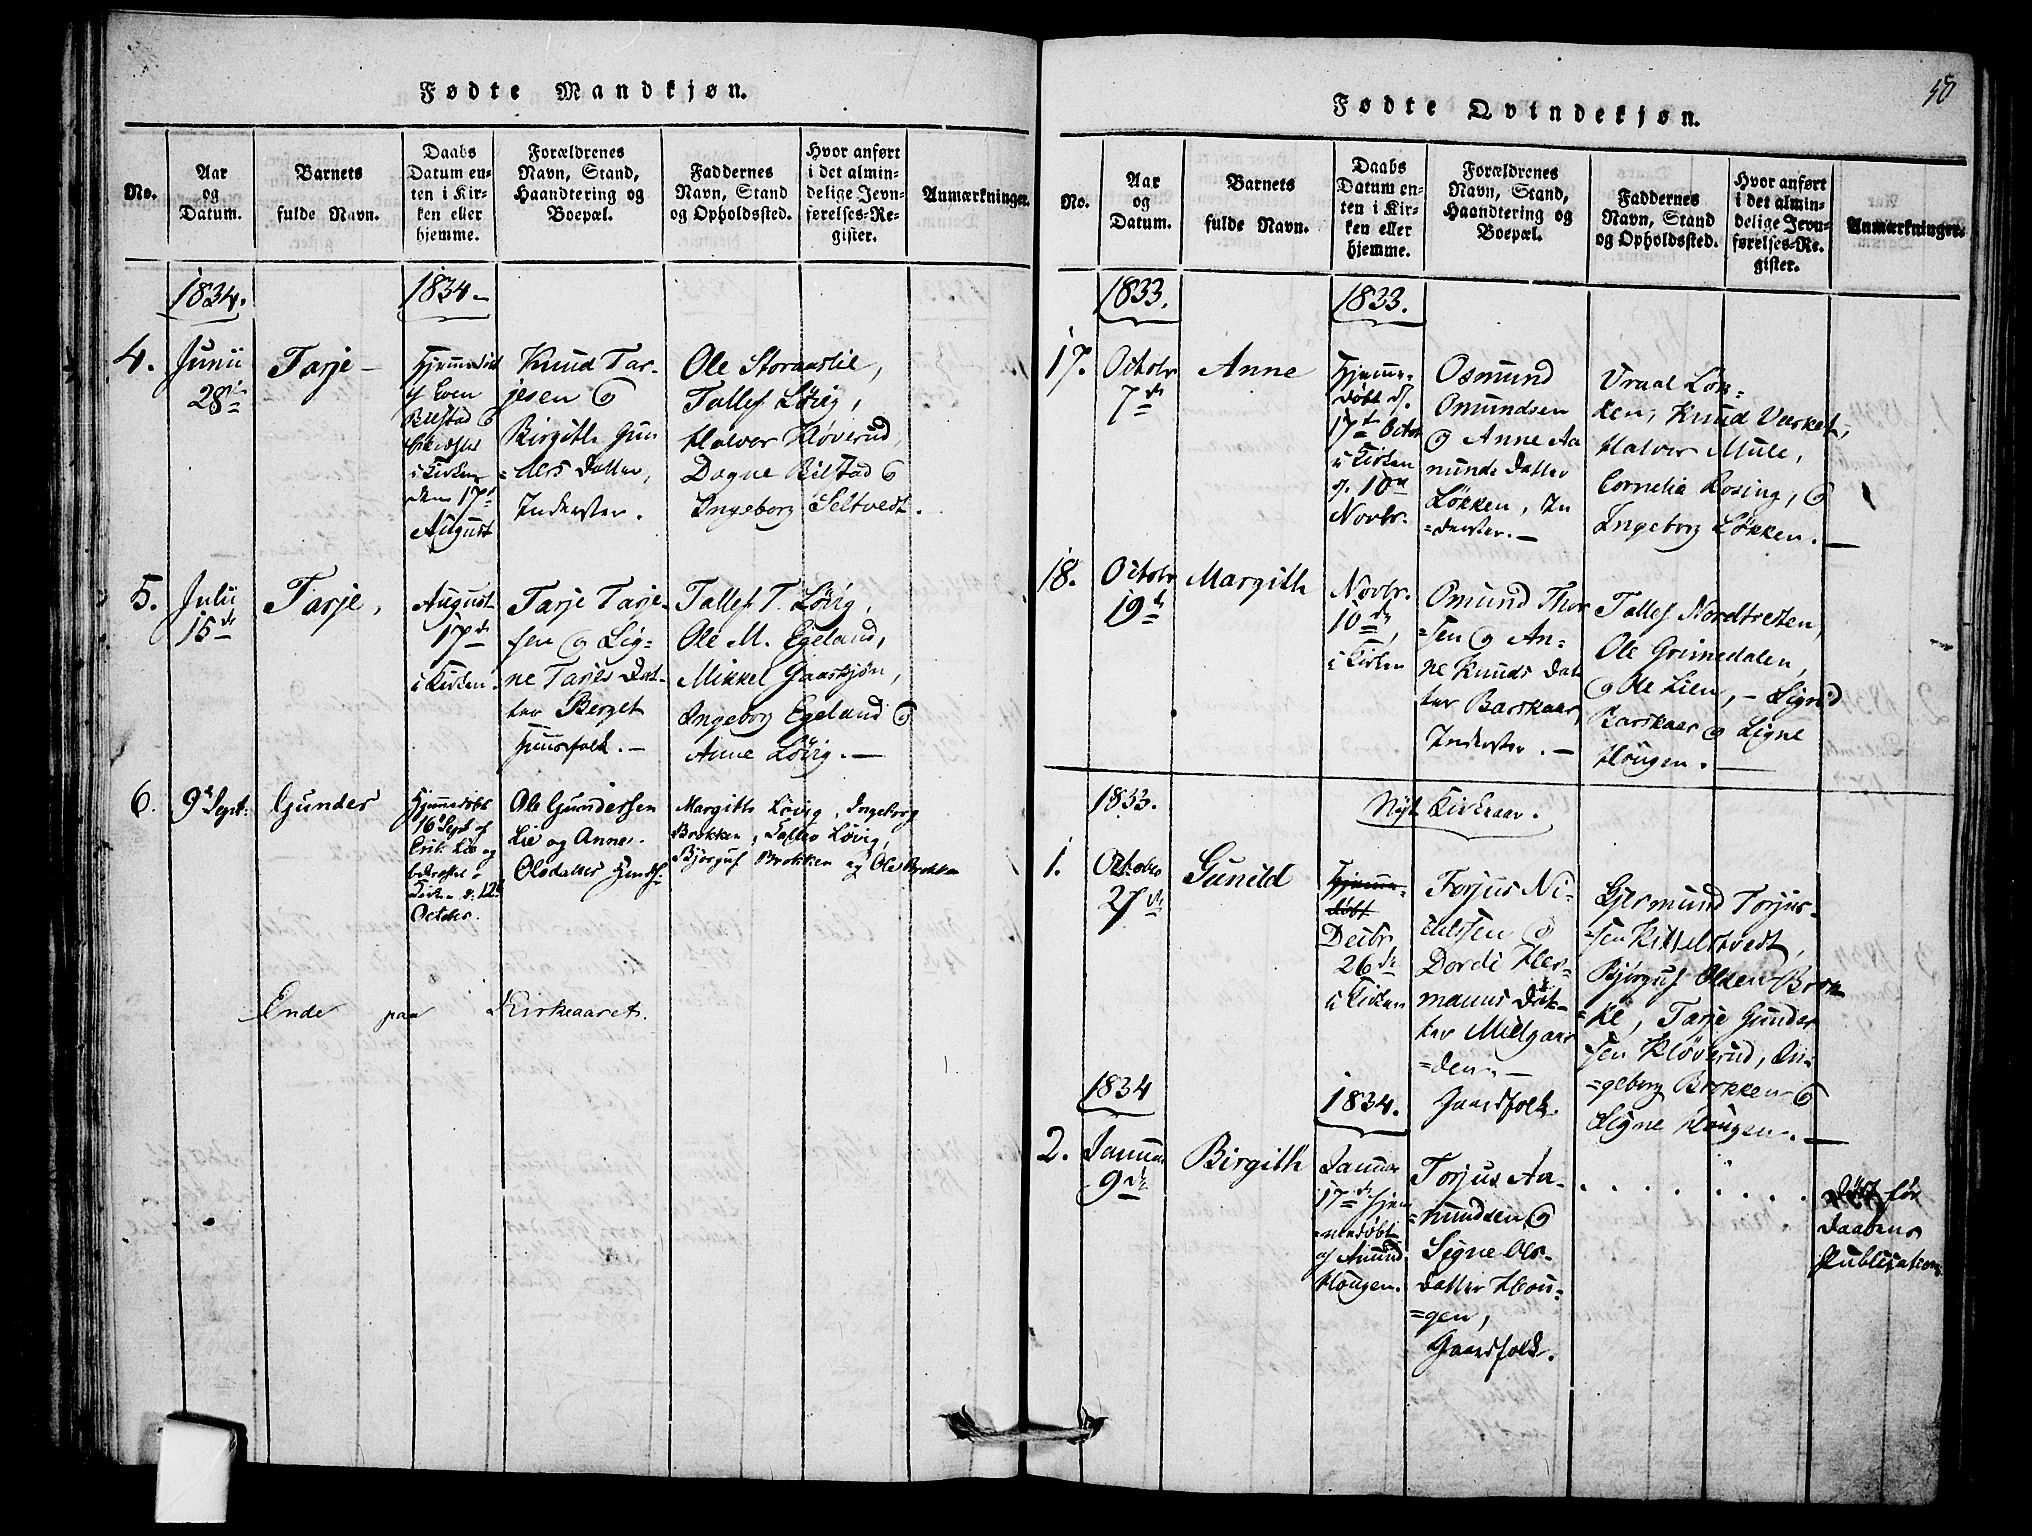 Fødte Mandkjøn.
No.
Aar
og
Datum.
Barnets
fulde Navn.
Daabs
Datum en-
ten i Kir-
ken eller
hjemme.
Forældrenes
Navn, Stand,
Haandtering og
Boepæl.
Faddernes
Navn, Stand
og Opholdssted.
Hvor anført
i det almin-
delige Jevn-
førelses-Re-
gister.
Anmærkninger.
1834.
1834
4.
Junii
28de
Tarje
Hjemmedøbt
af Even
Bilstad
i Kirken
den 17de
August
Knud Tar-
jesen og
Birgith Gun-
ders Datter,
Inderster.
Ole Storaaslie,
Tallef Løvig,
Halvor Kløverud,
Dagne Bilstad og
Ingeborg Seltvedt.
5.
Julii
15de
Tarje,
August
17de
i Kirken.
Tarje Tarje-
sen og Sig-
ne Tarjes Dat-
ter Berget
Huusfolk.
Tallef T. Løvig,
Ole M. Egeland,
Mikkel Gaaskjøn,
Ingeborg Egeland og
Anne Løvig.
6.
9de Sept.
Gunder
Hjemmedøbt
16de Sept. af
Lie og
Kirken d. 12te
October.
Ole Gundersen
Lie og Anne
Olsdatter
Margith Løvig, Ingeborg
Brokken, Tallev Løvig,
Bjørguf Brokken og Ole Brokken
Ende paa Kirkeaaret.
50
Fødte Qvindekjøn.
No.
Aar
og
Datum.
Barnets
fulde Navn.
Daabs
Datum en-
ten i Kir-
ken eller
hjemme.
Forældrenes
Navn, Stand,
Haandtering og
Boepæl.
Faddernes
Navn, Stand
og Opholdssted.
Hvor anført
i det almin-
delige Jevn-
førelses-Re-
gister.
Anmærkninger.
1833.
1833.
17.
Octobr
7de
Anne
Hjemme-
døbt d.
17de Octobr
i Kirken
d. 10de
Novbr.
Osmund
Omundsen
og Anne Aa-
munds Datter
Løkken, In-
=derster.
Vraal Løk-
ken, Knud Værket,
Halvor Mule,
Cornelia Rosing, og
Ingeborg Løkken.
18.
Octobr
19de
Margith
Novbr.
10de,
i Kirken
Omund Thor
=sen og An-
ne Knuds Dat
ter Barskaar,
Inderster.
Tallef Nordtresten,
Ole Grimedalen,
og Ole Lien, - Sigrid
Barskaar og Signe
Hougen.
1833.
Nyt Kirkeaar.
1.
October
27de
Gunild
Hjemme-
døbt
Decbr
26de
i Kirken
Torjus Ni-
elssen og
Dordi Her-
manns Dat-
ter Mielgaar
=den.
Gaardfolk.
Gjermund Torjus-
=sen Kittelstvedt,
Bjørguf Olsen Brok
=ke, Tarje Gunder
=sen Kløverud, In-
=geborg Brokken og
Signe Hougen.
1834
1834.
2.
Januar
9de
Birgith
Januar
17de Hjem
=medøbt
af Amund
Hougen.
Torjus Aa-
=mundsen og
Signe Ols-
datter Hou-
=gen,
Gaardfolk.
Død før
Daabens
Publication.